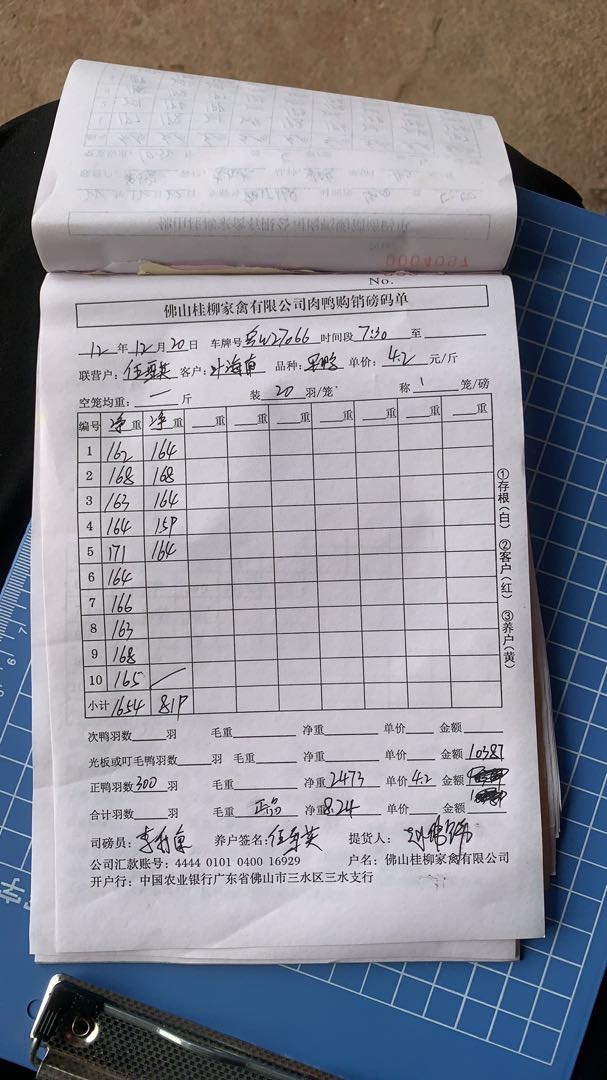 0004097
No.
佛山桂柳家禽有限公司肉鸭购销磅码单
12年12月20日 车牌号W27066 时间段7:30至
联营户: 客户: 品种: 单价:4.2元/斤
空笼均重:一斤 装20羽/笼 称1笼/磅
编号 净重 净重 重 重 重 重 重 重
1 162 164
2 168 168
3 163 164
4 164 159
5 171 164
6 164
7 166
8 163
9 168
10 165
小计 1654 819
①存根(白) ②客户(红) ③养户(黄)
次鸭羽数 羽 毛重 净重 单价 金额
光板或叮毛鸭羽数 羽 毛重 净重 单价 金额10387
正鸭羽数300羽 毛重 净重2473 单价4.2 金额
合计羽数 羽 毛重 正品 净重8.24 单价 金额
司磅员: 养户签名: 提货人:
公司汇款账号: 4444 0101 0400 16929 户名: 佛山桂柳家禽有限公司
开户行: 中国农业银行广东省佛山市三水区三水支行